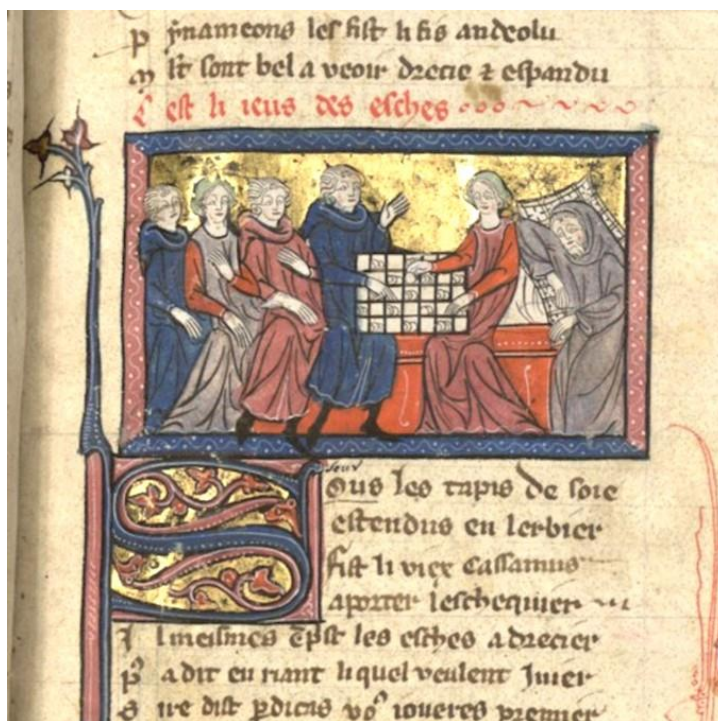 P ymameons les fist li fis andeolu
M lt sont bel a veoir drecie & espandu
C est li ieus des esches
Sous les tapis de soie
estendus en lerbier
fist li viex cassamus
aporter leschequier
I l meismes
les esches a drecier
P
a dit en riant liquel veulent iuer
S ire dist
ioueres premier